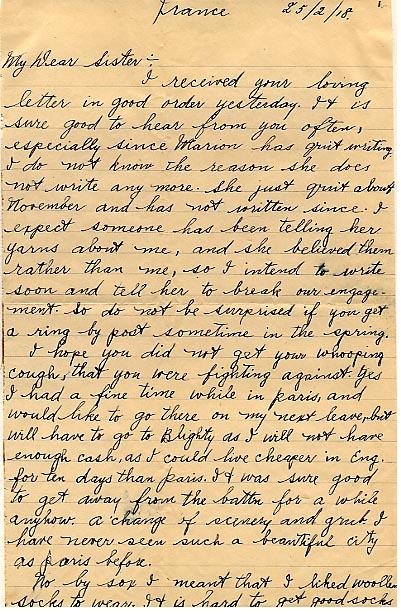 France 25/2/18. 1.
My Dear Sister :-
I received your loving
letter in good order yesterday. It is
sure good to hear from you often,
especially since Marion has quit writing.
I do not know the reason she does
not write any more. She just quit about
November and has not written since. I
expect someone has been telling her
yarns about me, and she believed them
rather than me, so I intend to write
soon and tell her to break our engage-
ment. So do not be surprised if you get
a ring by post sometime in the spring.
I hope you did not get your whooping
cough, that you were fighting against. Yes
I had a fine time while in Paris, and
would like to go there on my next leave, but
will have to go to Blighty as I will not have
enough cash, as I could live cheaper in Eng.
for ten days than Paris. It was sure good
to get away from the battn for a while
anyhow. A change of scenery and grub. I
have never seen such a beautiful city
as Paris before.
No by sox I meant that I liked woollen
socks to wear. It is hard to get good socks